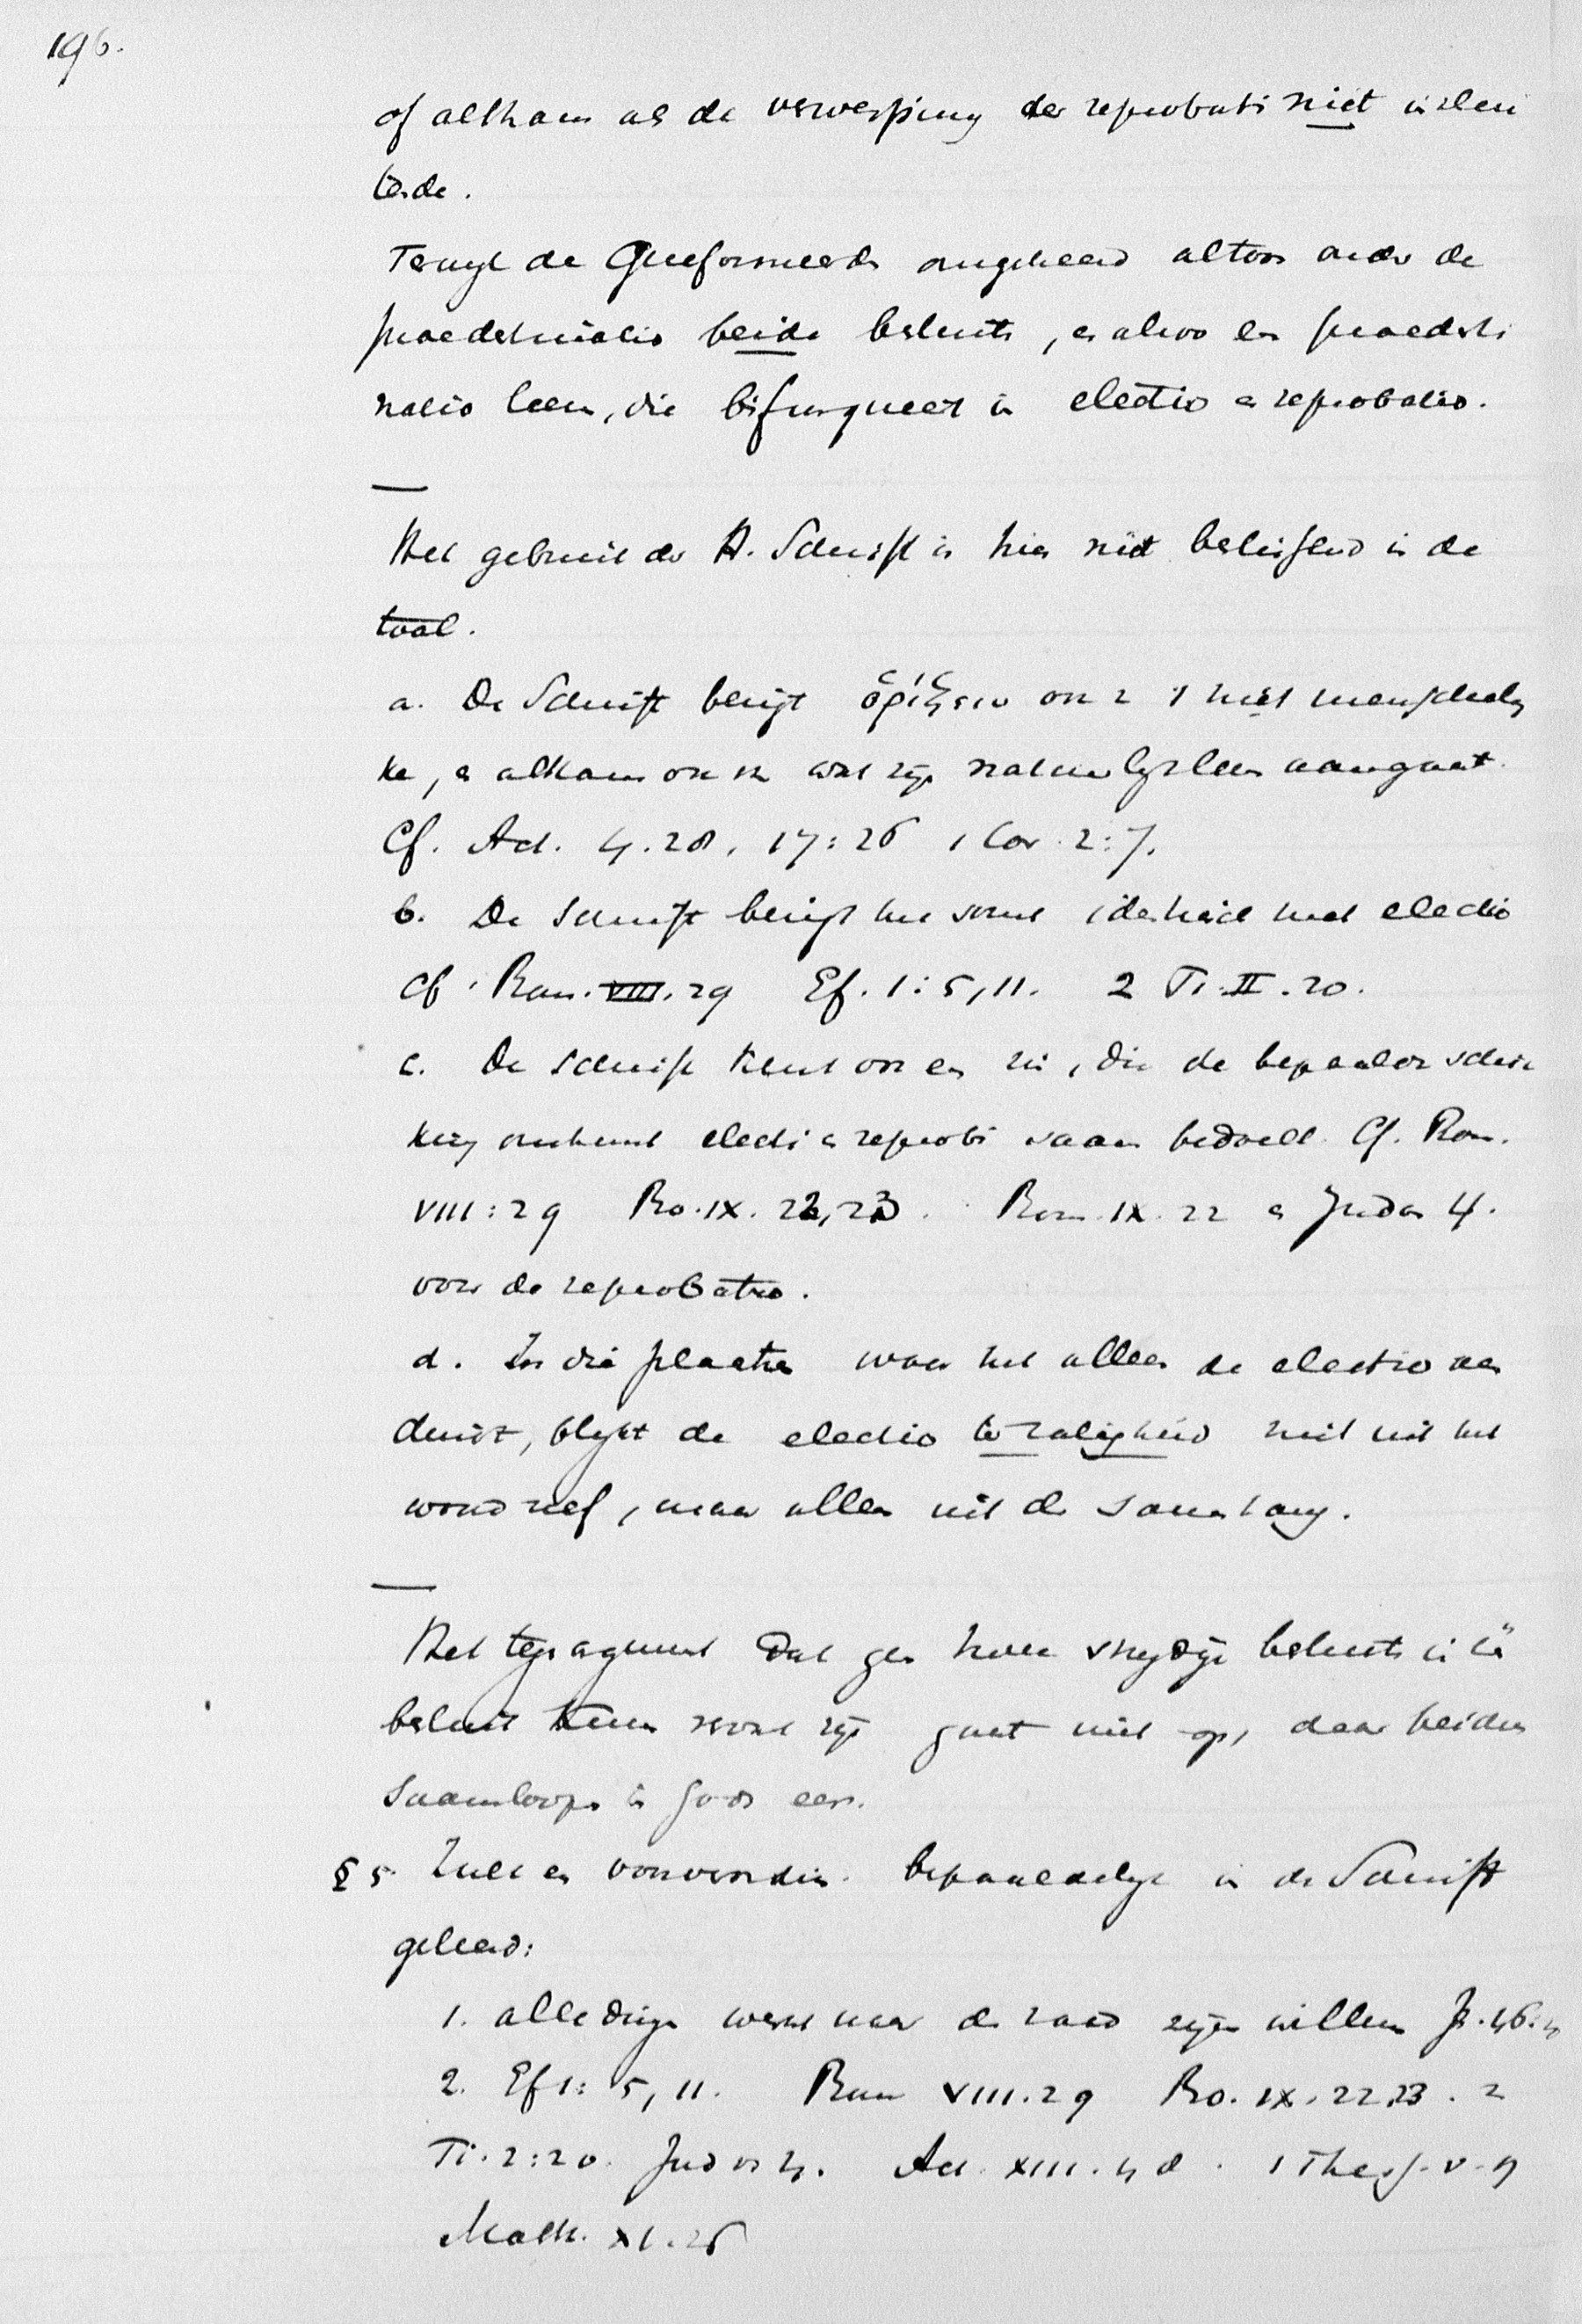 196.
of althans als de verwerping der reprobati niet inslui
tende.
Terwijl de Gereformeerde omgekeerd altoos onder de
praedestinatio beide besluits, en alzoo een praedesti
natio leeren, die bifurqueert in electio en reprobatio.
—
Het gebruik der H. Schrift is hier niet beslissend in de
taal.
a. De Schrift bezigt ὁρίζειν ook menschely
ke, en althans ook in wat zijn natuurlijk leven aangaat.
Cf. Act. 4.28, 17:26 1 Cor. 2:7.
b. De Schrift bezigt het soms identiek met electio
Cf. Rom. VIII. 29 Ef. 1:5,11. 2 Ti. II. 20.
c. De Schrift kent ook een zin, die de bepaalde schik
king omtrent electi en reprobi saam bedoelt. Cf. Rom.
VIII:29 Ro. IX. 22,23. Rom. IX. 22 en Judas 4.
voor de reprobatio.
d. In die plaatsen waar het alleen de electio aan
duidt, blijkt de electio ter zaligheid niet uit het
woord zelf, maar alleen uit de samenhang.
—
Het tegenargument dat geen twee strijdige besluits in één
besluit kunnen vervat zijn gaat niet op, daar beiden
saamloopen in Gods eer.
§ 5. Zulk een bepaaldelijk in de Schrift
geleerd:
1. alle dingen werkt naar de raad zijns willens Js. 46:10
2. Ef 1: 5, 11. Rom VIII. 29 Ro. IX. 22,23. 2
Ti. 2:20. Judas 4. Act. XIII. 48. 1 Thess. V. 9
Matth. XI. 26